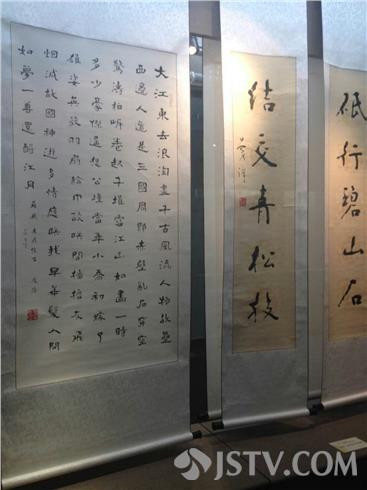 砥行碧山石
結交青松枝
大江東去浪淘盡千古風流人物故壘
西邊人道是三國周郎赤壁亂石穿空
驚濤拍岸卷起千堆雪江山如畫一時
多少豪傑遙想公瑾當年小喬初嫁了
雄姿英發羽扇綸巾談笑間檣櫓灰飛
烟滅故國神遊多情應笑我早生華髮人間
如夢一尊還酹江月
JSTV.COM